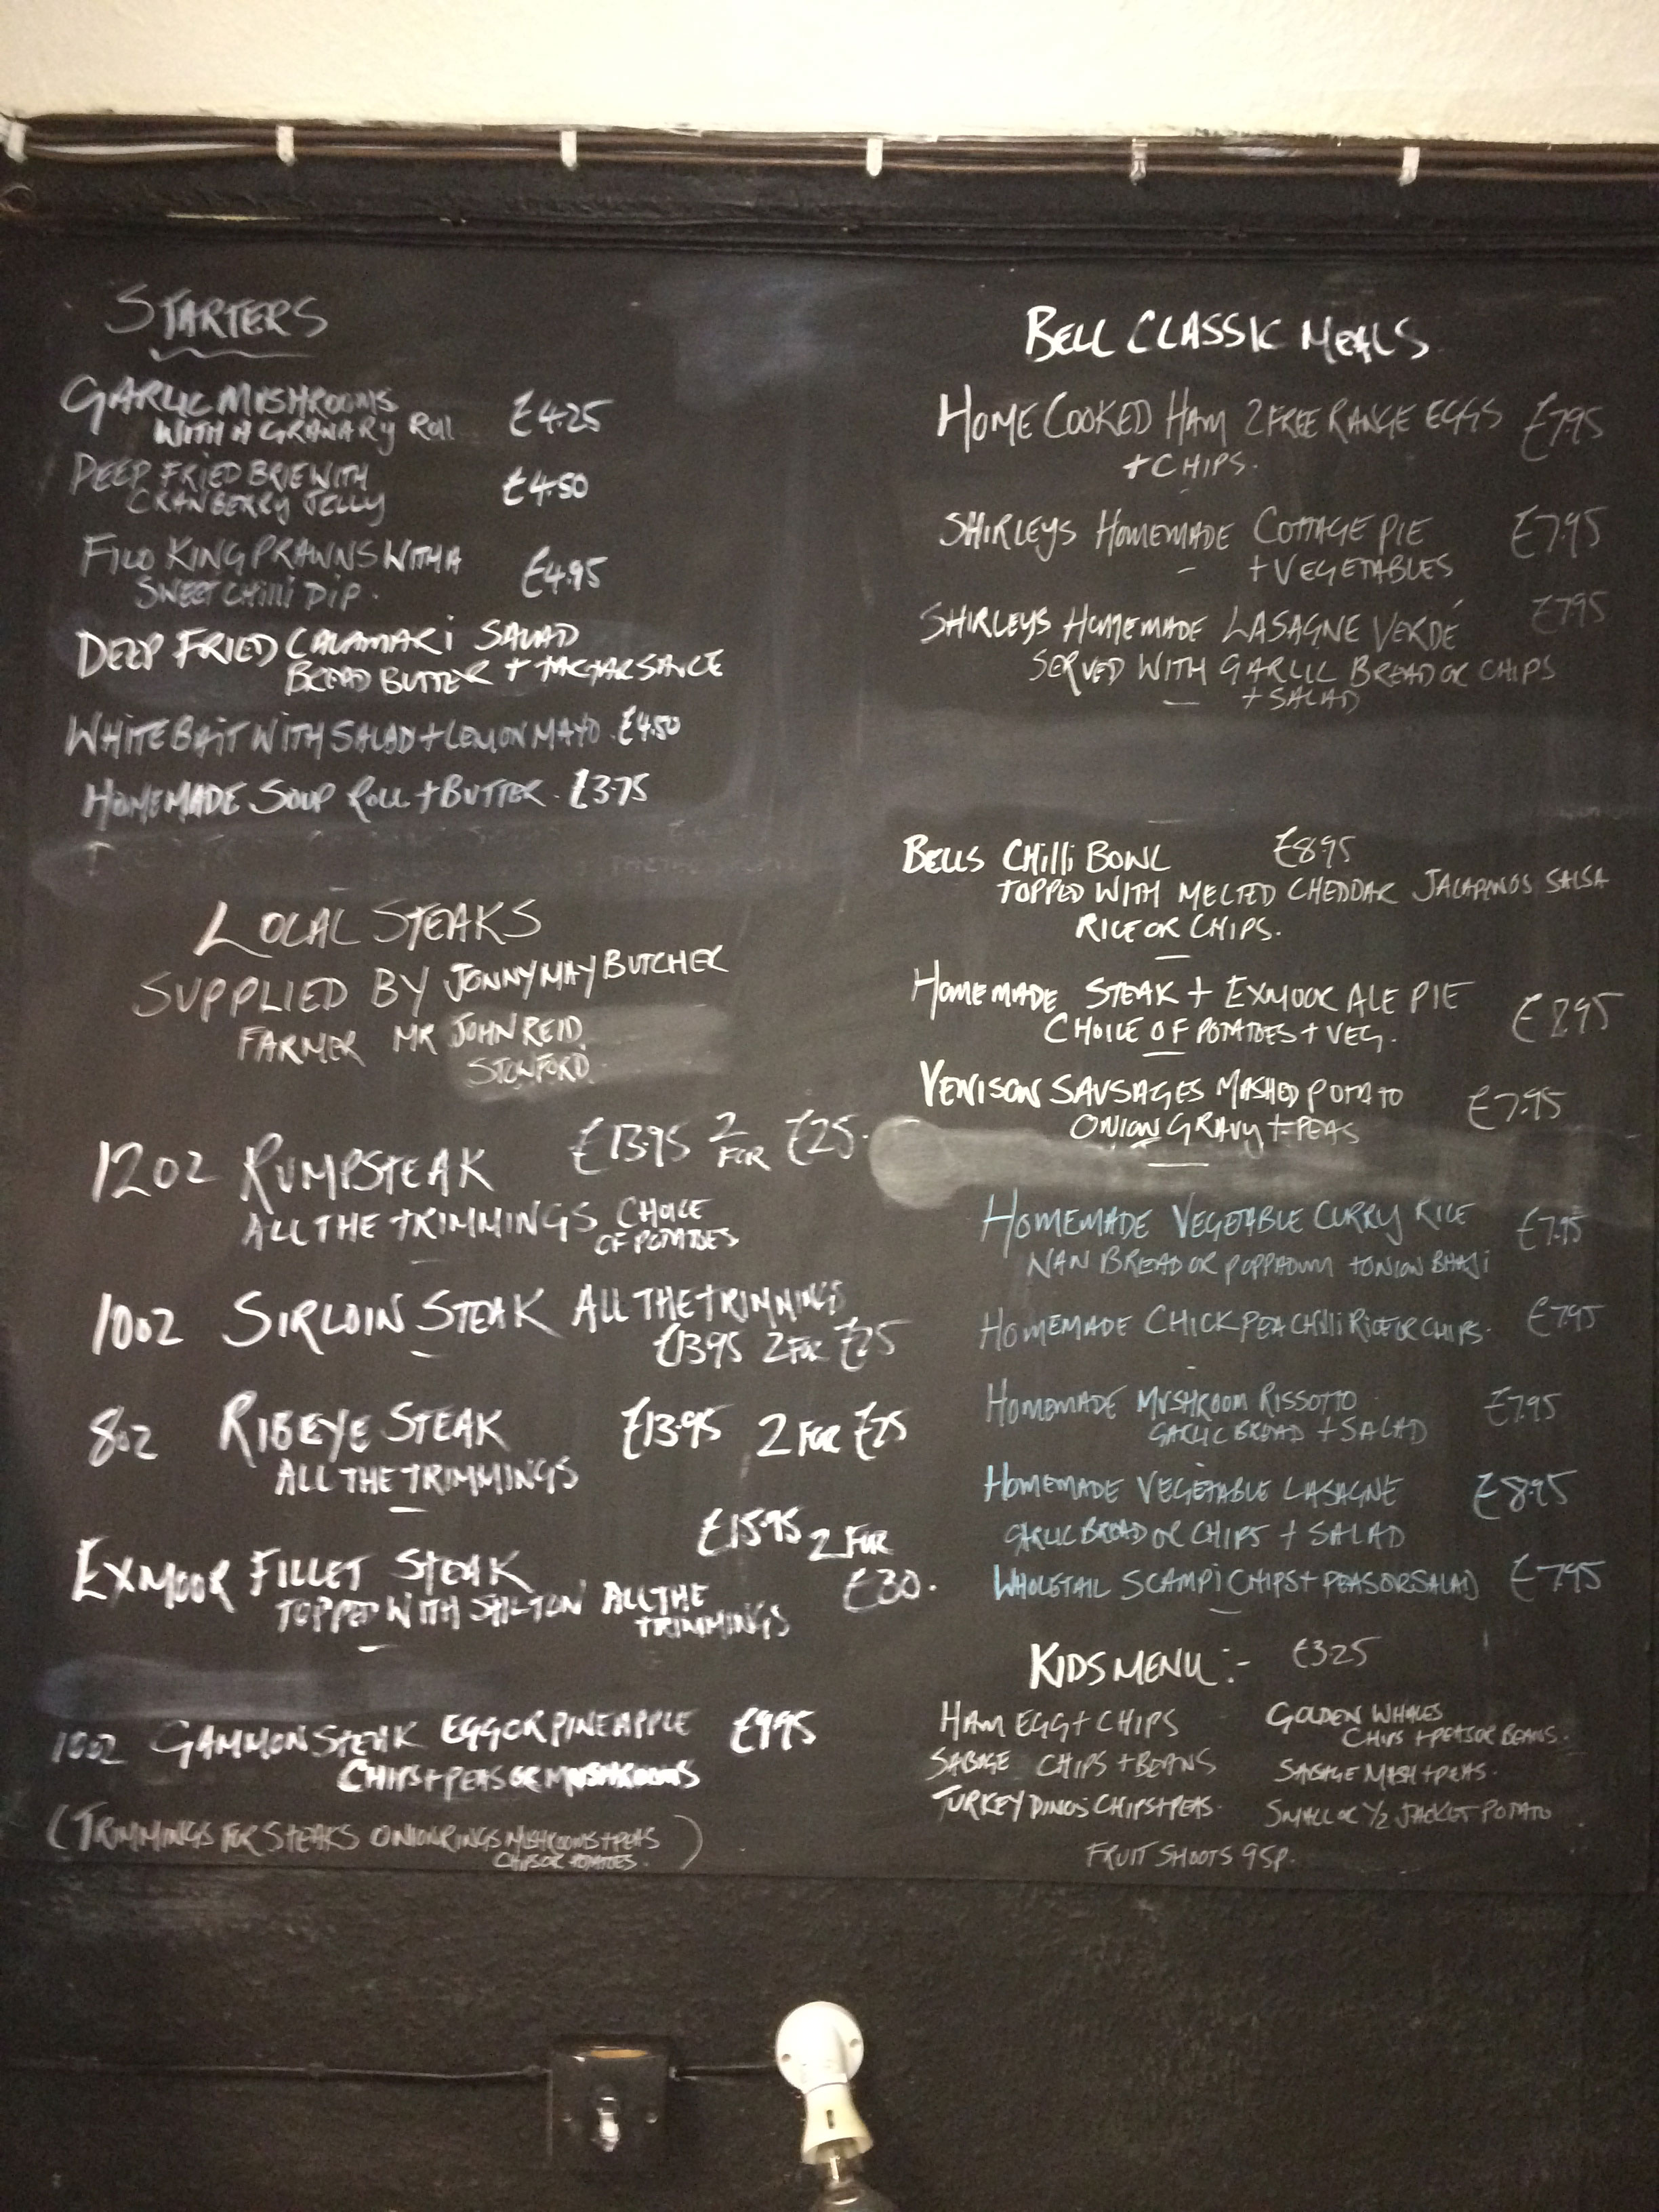 STARTERS
GARLIC MUSHROOMS
WITH A GRANARY Roll £4.25
DEEP FRIED BRIE WITH
CRANBERRY JELLY £4.50
FILO KING PRAWNS WITH A
SWEET CHilli DiP. £4.95
DEEP FRIED CALAMARi SALAD
BREAD BUTTER + TARTAR SAUCE
WHITE BAiT WITH SALAD + LEMON MAYO £4.50
HOMEMADE SOUP ROLL + BUTTER. £3.75
LOCAL STEAKS
SUPPLIED BY JONNY MAY BUTCHER
FARMER MR JOHN REID.
STOWFORD
12OZ RUMPSTEAK £13.95 2 FOR £25.
ALL THE TRIMMINGS CHOICE
OF POTATOES
10OZ SIRLOIN STEAK ALL THE TRIMMINGS
£13.95 2 FOR £25
8OZ RIBEYE STEAK £13.95 2 FOR £25
ALL THE TRIMMINGS
£15.95 2 FOR
EXMOOR FILLET STEAK £30.
TOPPED WITH STILTON ALL THE
TRIMMINGS
10OZ GAMMON STEAK EGG OR PINEAPPLE £9.95
CHIPS + PEAS OR MUSHROOMS
(TRIMMINGS FOR STEAKS ONION RINGS MUSHROOMS + PEAS
CHIPS OR POTATOES.)
BELL CLASSIC MEALS
HOME COOKED HAM 2 FREE RANGE EGGS £7.95
+ CHIPS.
SHIRLEYS HOMEMADE COTTAGE PIE £7.95
+ VEGETABLES
SHIRLEYS HOMEMADE LASAGNE VERDÉ £7.95
SERVED WITH GARLIC BREAD OR CHIPS
+ SALAD
BELLS CHilli BOWL £8.95
TOPPED WITH MELTED CHEDDAR JALAPINOS SALSA
RICE OR CHIPS.
HOMEMADE STEAK + EXMOOR ALE PIE £8.95
CHOICE OF POTATOES + VEG.
VENISON SAUSAGES MASHED POTATO £7.95
ONION GRAVY + PEAS
HOMEMADE VEGETABLE CURRY RICE £7.95
NAN BREAD OR POPPADUM + ONION BHAJi
HOMEMADE CHICKPEA CHilli RICE OR CHIPS. £7.95
HOMEMADE MUSHROOM RISSOTTO £7.95
GARLIC BREAD + SALAD
HOMEMADE VEGETABLE LASAGNE £8.95
GARLIC BREAD OR CHIPS + SALAD
WHOLETAIL SCAMPi CHIPS + PEAS OR SALAD £7.95
KIDS MENU:- £3.25
HAM EGG + CHIPS GOLDEN WHALES
CHIPS + PEAS OR BEANS.
CHIPS + BEANS MASH + PEAS.
TURKEY DINOS CHIPS + PEAS. SMALL OR 1/2 JACKET POTATO
FRUIT SHOOTS 95P.